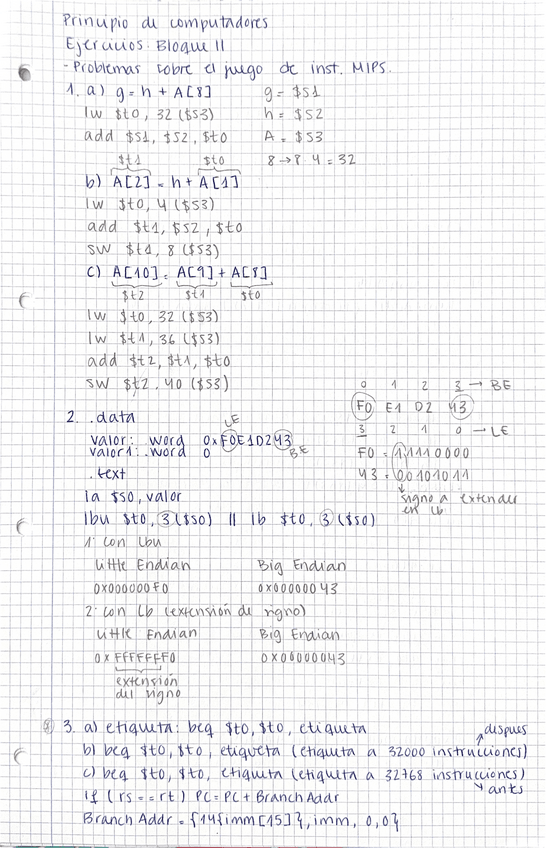 Principio de computadores
Ejercicios Bloque II
- Problemas sobre el juego de inst. MIPS.
1. a) g = h + A[8]   g = $S1
lw $t0, 32 ($S3)   h = $S2
add $S1, $S2, $t0   A = $S3
$t1   $t0   8 → 8·4 = 32
b) A[2] = h + A[1]
lw $t0, 4 ($S3)
add $t1, $S2, $t0
sw $t1, 8 ($S3)
c) A[10] = A[9] + A[8]
$t2   $t1   $t0
lw $t0, 32 ($S3)
lw $t1, 36 ($S3)
add $t2, $t1, $t0
sw $t2, 40 ($S3)
0 1 2 3 → BE
F0 E1 D2 43
3 2 1 0 → LE
F0 = 11110000
43 = 00101011
signo a extender
en lb
2. .data
LE
valor: .word 0xF0E1D243
BE
valor1: .word 0
.text
la $S0, valor
lbu $t0, 3($S0) || lb $t0, 3($S0)
1· con lbu
Little Endian   Big Endian
0x000000F0   0x00000043
2· con lb (extensión de signo)
Little Endian   Big Endian
0xFFFFFFF0   0x00000043
extensión
del signo
3. a) etiqueta: beq $t0, $t0, etiqueta
después
b) beq $t0, $t0, etiqueta (etiqueta a 32000 instrucciones)
c) beq $t0, $t0, etiqueta (etiqueta a 32768 instrucciones)
antes
if (rs == rt) PC = PC + Branch Addr
Branch Addr = {14{imm[15]}, imm, 0,0}